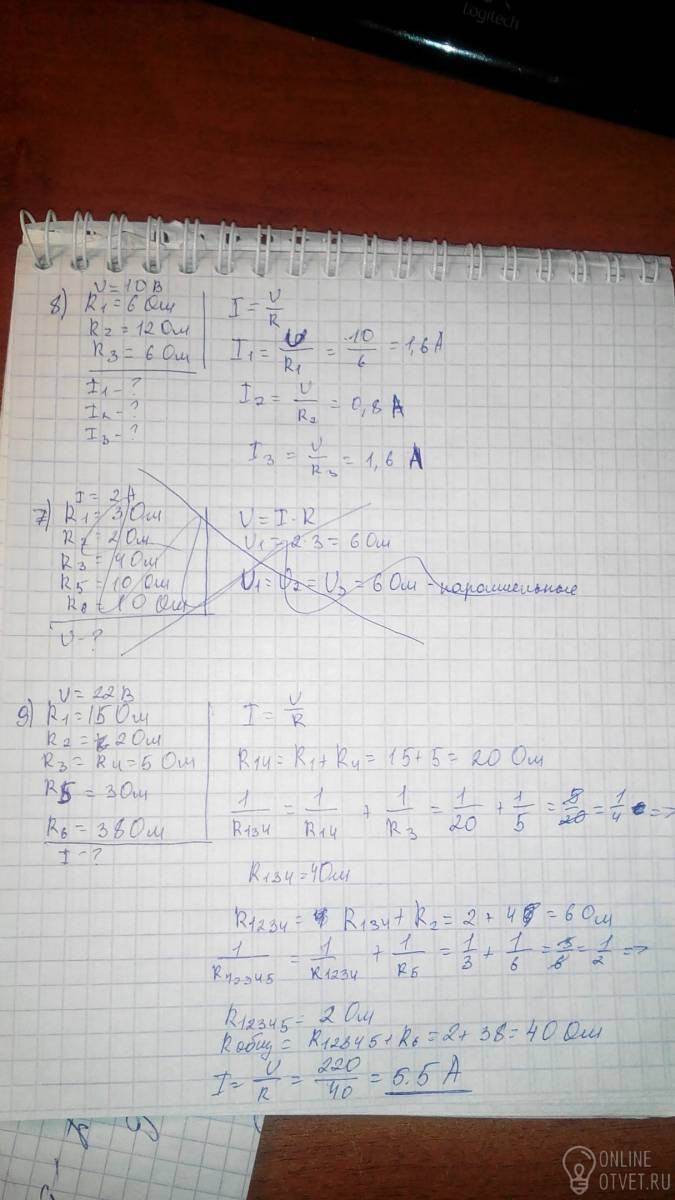 Logitech
8) U = 10 В
R1 = 6 Ом
R2 = 12 Ом
R3 = 6 Ом
I1 - ?
I2 - ?
I3 - ?
I = U/R
I1 = U/R1 = 10/6 = 1,6 A
I2 = U/R2 = 0,8 A
I3 = U/R3 = 1,6 A
7) I = 2 A
R1 = 3 Ом
R2 = 2 Ом
R3 = 4 Ом
R5 = 10 Ом
= 10 Ом
U - ?
U = I · R
U1 = 2 · 3 = 6 Ом
U1 = U2 = U3 = 6 Ом -
9) U = 22 В
R1 = 15 Ом
R2 = 2 Ом
R3 = R4 = 5 Ом
R5 = 3 Ом
R6 = 38 Ом
I - ?
I = U/R
R14 = R1 + R4 = 15 + 5 = 20 Ом
1/R134 = 1/R14 + 1/R3 = 1/20 + 1/5 = 5/20 = 1/4 =>
R134 = 4 Ом
R1234 = R134 + R2 = 2 + 4 = 6 Ом
1/R12345 = 1/R1234 + 1/R5 = 1/3 + 1/6 = 3/6 = 1/2 =>
R12345 = 2 Ом
Rобщ = R12345 + R6 = 2 + 38 = 40 Ом
I = U/R = 220/40 = 5.5 A
ONLINE
OTVET.RU